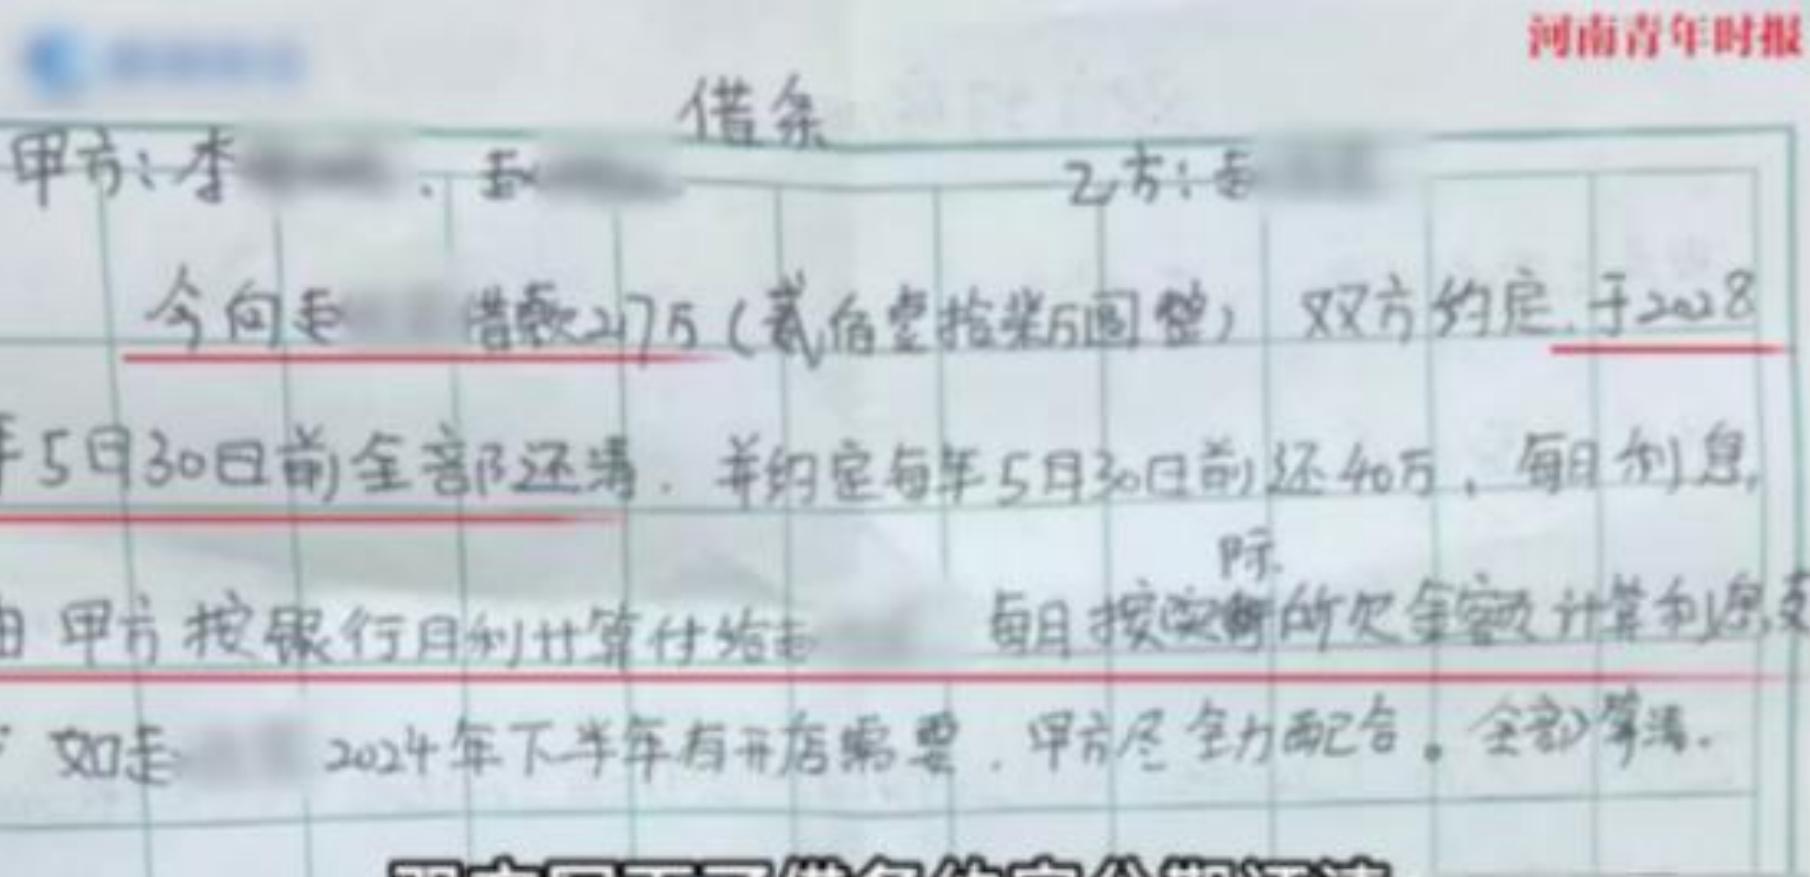 河南青年时报
借条
甲方：李 、 乙方：
今向 借款217万（贰佰壹拾柒万圆整） 双方约定，于2028
年5月30日前全部还清．并约定每年5月30日前还40万，每月利息，
由甲方按银行月利计算付给 每月按实际所欠金额计算利息
如 2024年下半年有开店需要．甲方尽全力配合。全部算清．
借条约定分期还清